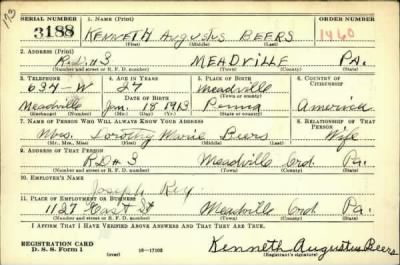 173
SERIAL NUMBER 1. NAME (Print) ORDER NUMBER
3188 KENNETH Augustus BEERS 1460
(First) (Middle) (Last)
2. ADDRESS (Print)
R.D. #3 MEADVILLE PA.
(Number and street or R. F. D. number) (Town) (County) (State)
3. TELEPHONE 4. AGE IN YEARS 5. PLACE OF BIRTH 6. COUNTRY OF CITIZENSHIP
634-W 27 Meadville
DATE OF BIRTH (Town or county)
Meadville Jan. 18 1913 Penna America
(Exchange) (Number) (Mo.) (Day) (Yr.) (State or country)
7. NAME OF PERSON WHO WILL ALWAYS KNOW YOUR ADDRESS 8. RELATIONSHIP OF THAT PERSON
Mrs. Dorothy Marie Beers Wife
(Mr., Mrs., Miss) (First) (Middle) (Last)
9. ADDRESS OF THAT PERSON
RD #3 Meadville Crd. Pa.
(Number and street or R. F. D. number) (Town) (County) (State)
10. EMPLOYER'S NAME
Joseph
11. PLACE OF EMPLOYMENT OR BUSINESS
1127 East St Meadville Crd Pa.
(Number and street or R. F. D. number) (Town) (County) (State)
I AFFIRM THAT I HAVE VERIFIED ABOVE ANSWERS AND THAT THEY ARE TRUE.
REGISTRATION CARD
D. S. S. FORM 1 (over) 16-17102 Kenneth Augustus Beers
(Registrant's signature)